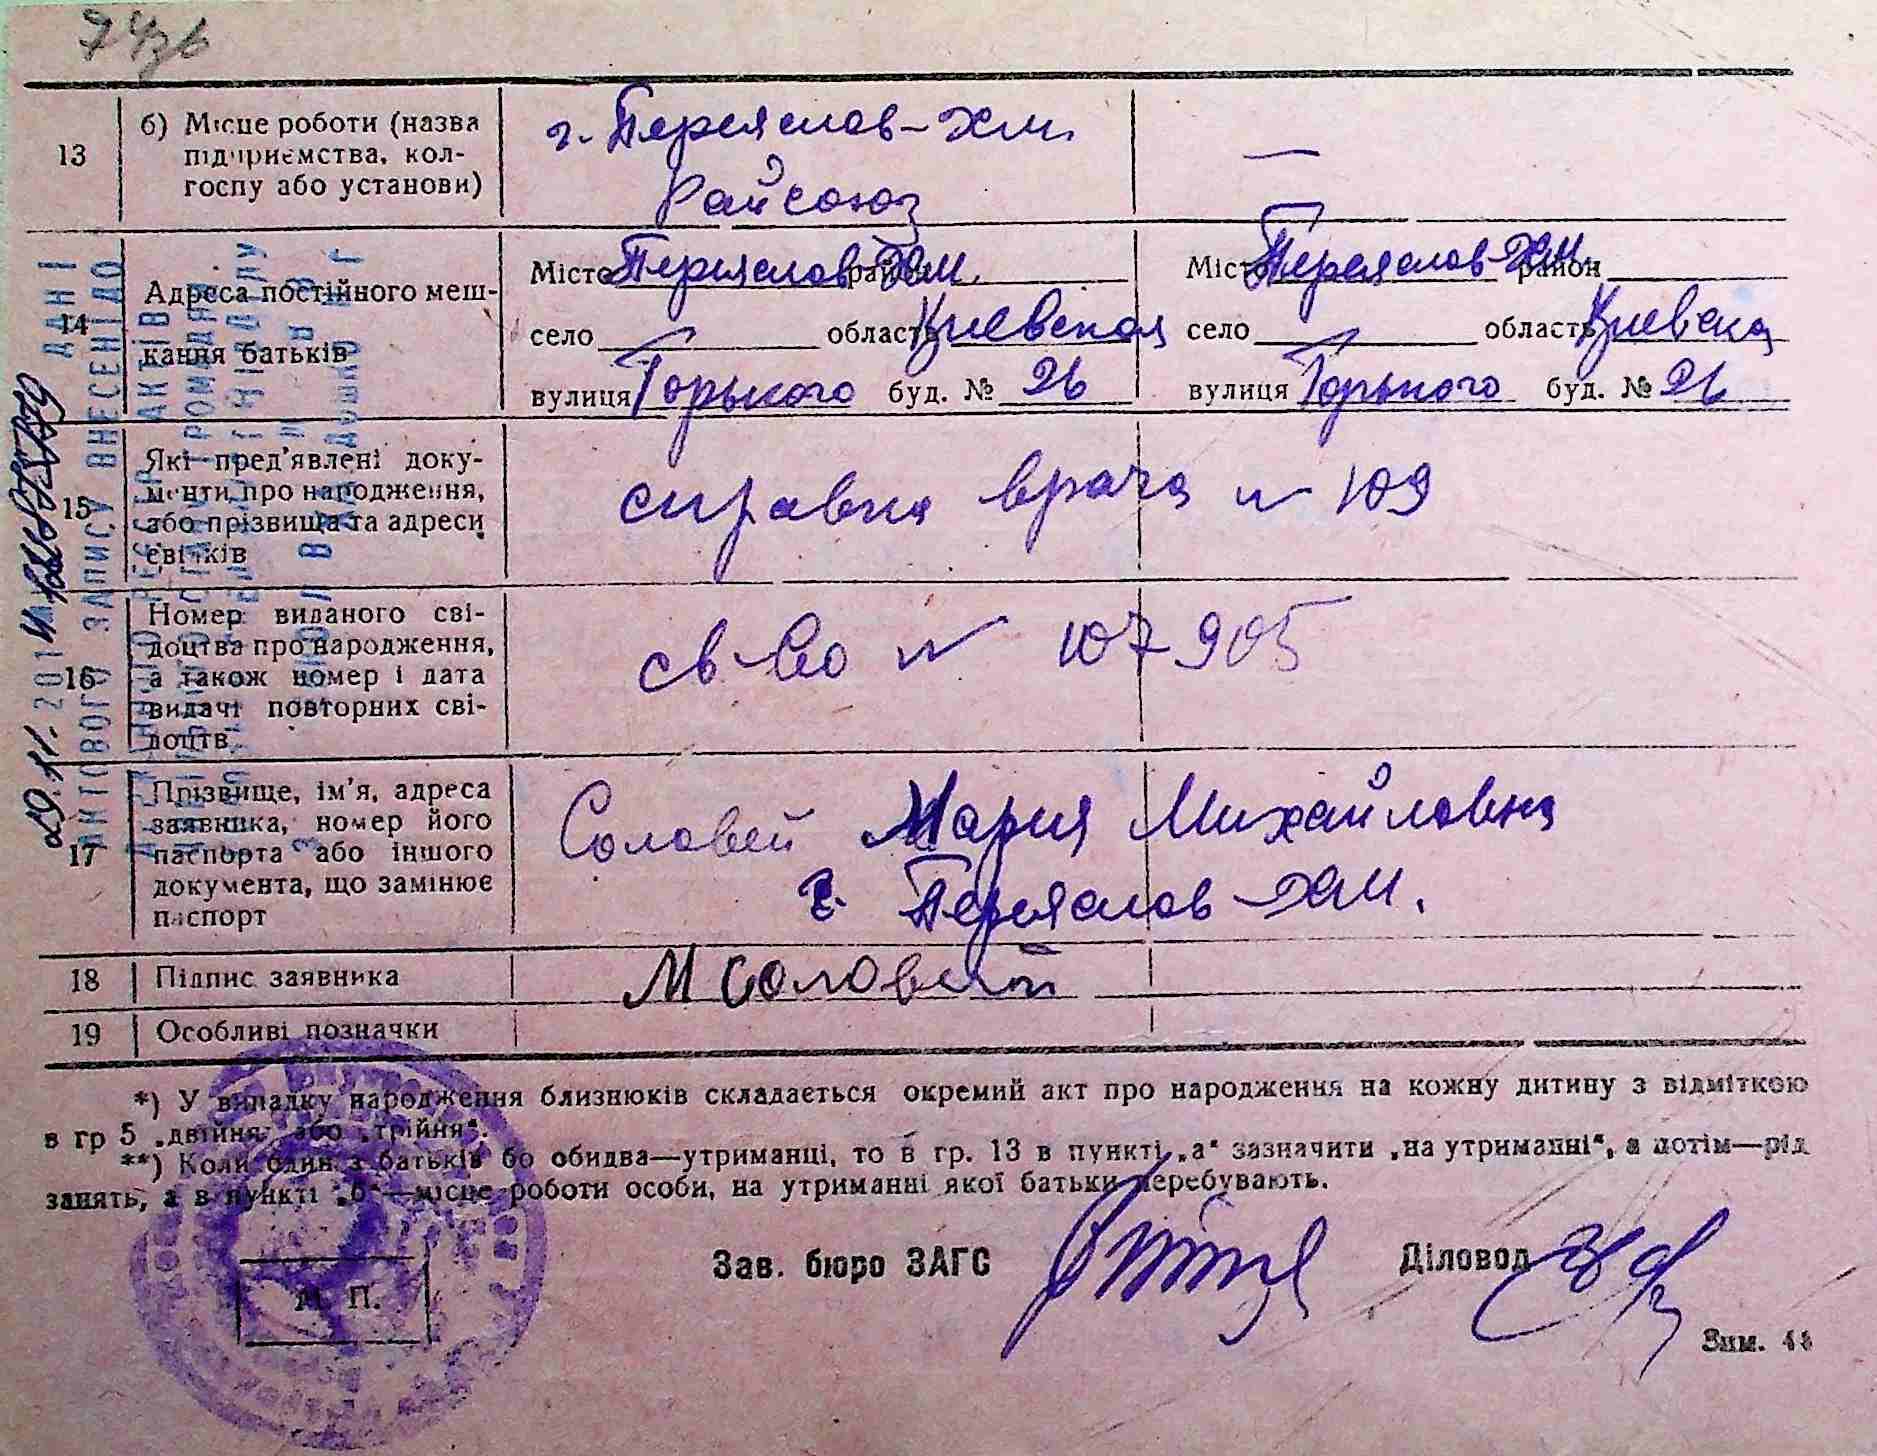 13
б) Місце роботи (назва
підприємства, кол-
госпу або установи)
г. Переяслов-Хм.
Райсоюз
—
14
Адреса постійного меш-
кання батьків
Місто Переяслов-Хм. район
село область Киевская
вулиця Горького буд. № 26
Місто Переяслов-Хм. район
село область Киевска
вулиця Горького буд. № 26
15
Які пред'явлені доку-
менти про народження,
або прізвища та адреси
свідків
справка врача № 109
16
Номер виданого сві-
доцтва про народження,
а також номер і дата
видачі повторних сві-
доцтв
св-во № 107905
17
Прізвище, ім'я, адреса
заявника, номер його
паспорта або іншого
документа, що замінює
паспорт
Соловей Мария Михайловна
г. Переяслов-Хм.
18
Підпис заявника
М Соловей
19
Особливі позначки
ДАНІ
АКТОВОГО ЗАПИСУ ВНЕСЕНІ ДО
29.11.201
*) У випадку народження близнюків складається окремий акт про народження на кожну дитину з відміткою
в гр 5 „двійня" або „трійня".
**) Коли один з батьків бо обидва—утриманці, то в гр. 13 в пункті „а" зазначити „на утриманні", а потім—рід
занять, а в пункті „б"—місце роботи особи, на утриманні якої батьки перебувають.
М. П.
Зав. бюро ЗАГС
Діловод